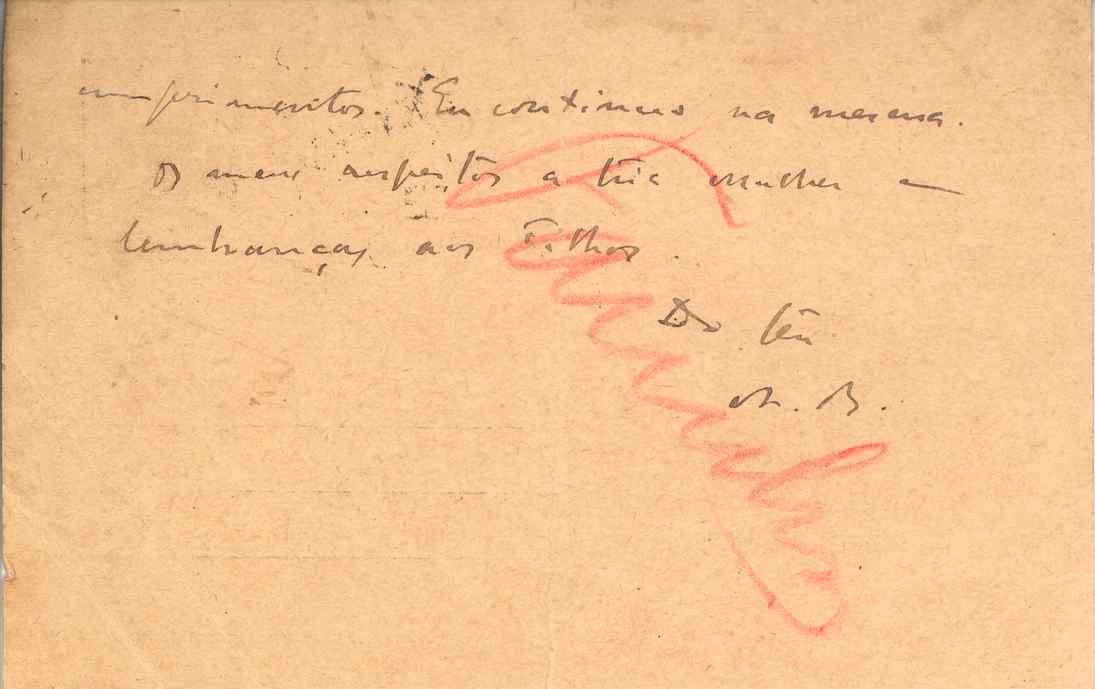 cumprimentos. Eu continuo na mesma.
Os meus respeitos a tua mulher e
lembranças aos Filhos.
Do teu
M. B.